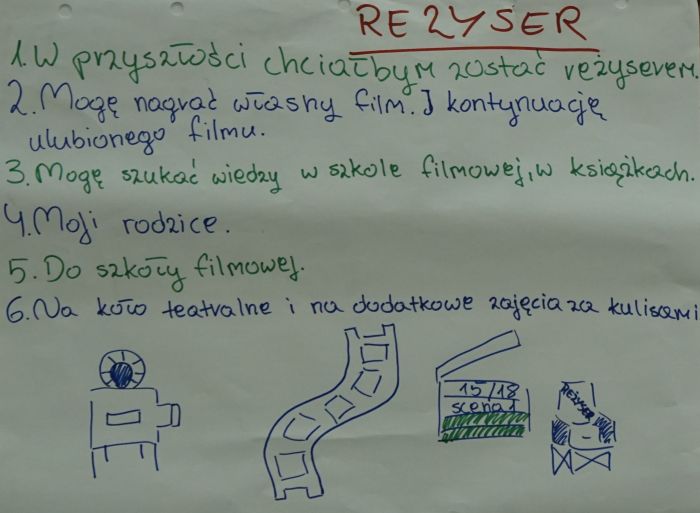 REŻYSER
1. W przyszłości chciałbym zostać reżyserem.
2. Mogę nagrać własny film. I kontynuację
ulubionego filmu.
3. Mogę szukać wiedzy w szkole filmowej, w książkach.
4. Moji rodzice.
5. Do szkoły filmowej.
6. Na koło teatralne i na dodatkowe zajęcia za kulisami
15/18
scena 1
REŻYSER